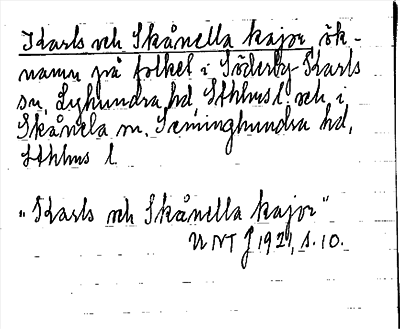 Karls och Skånella kajor, ök-
namn på folket i Söderby-Karls
sn, Lyhundra hd, Sthlms l. och i
Skånela sn, Seminghundra hd,
Sthlms l.
"Karls och Skånella kajor"
UNT J 1921, s. 10.